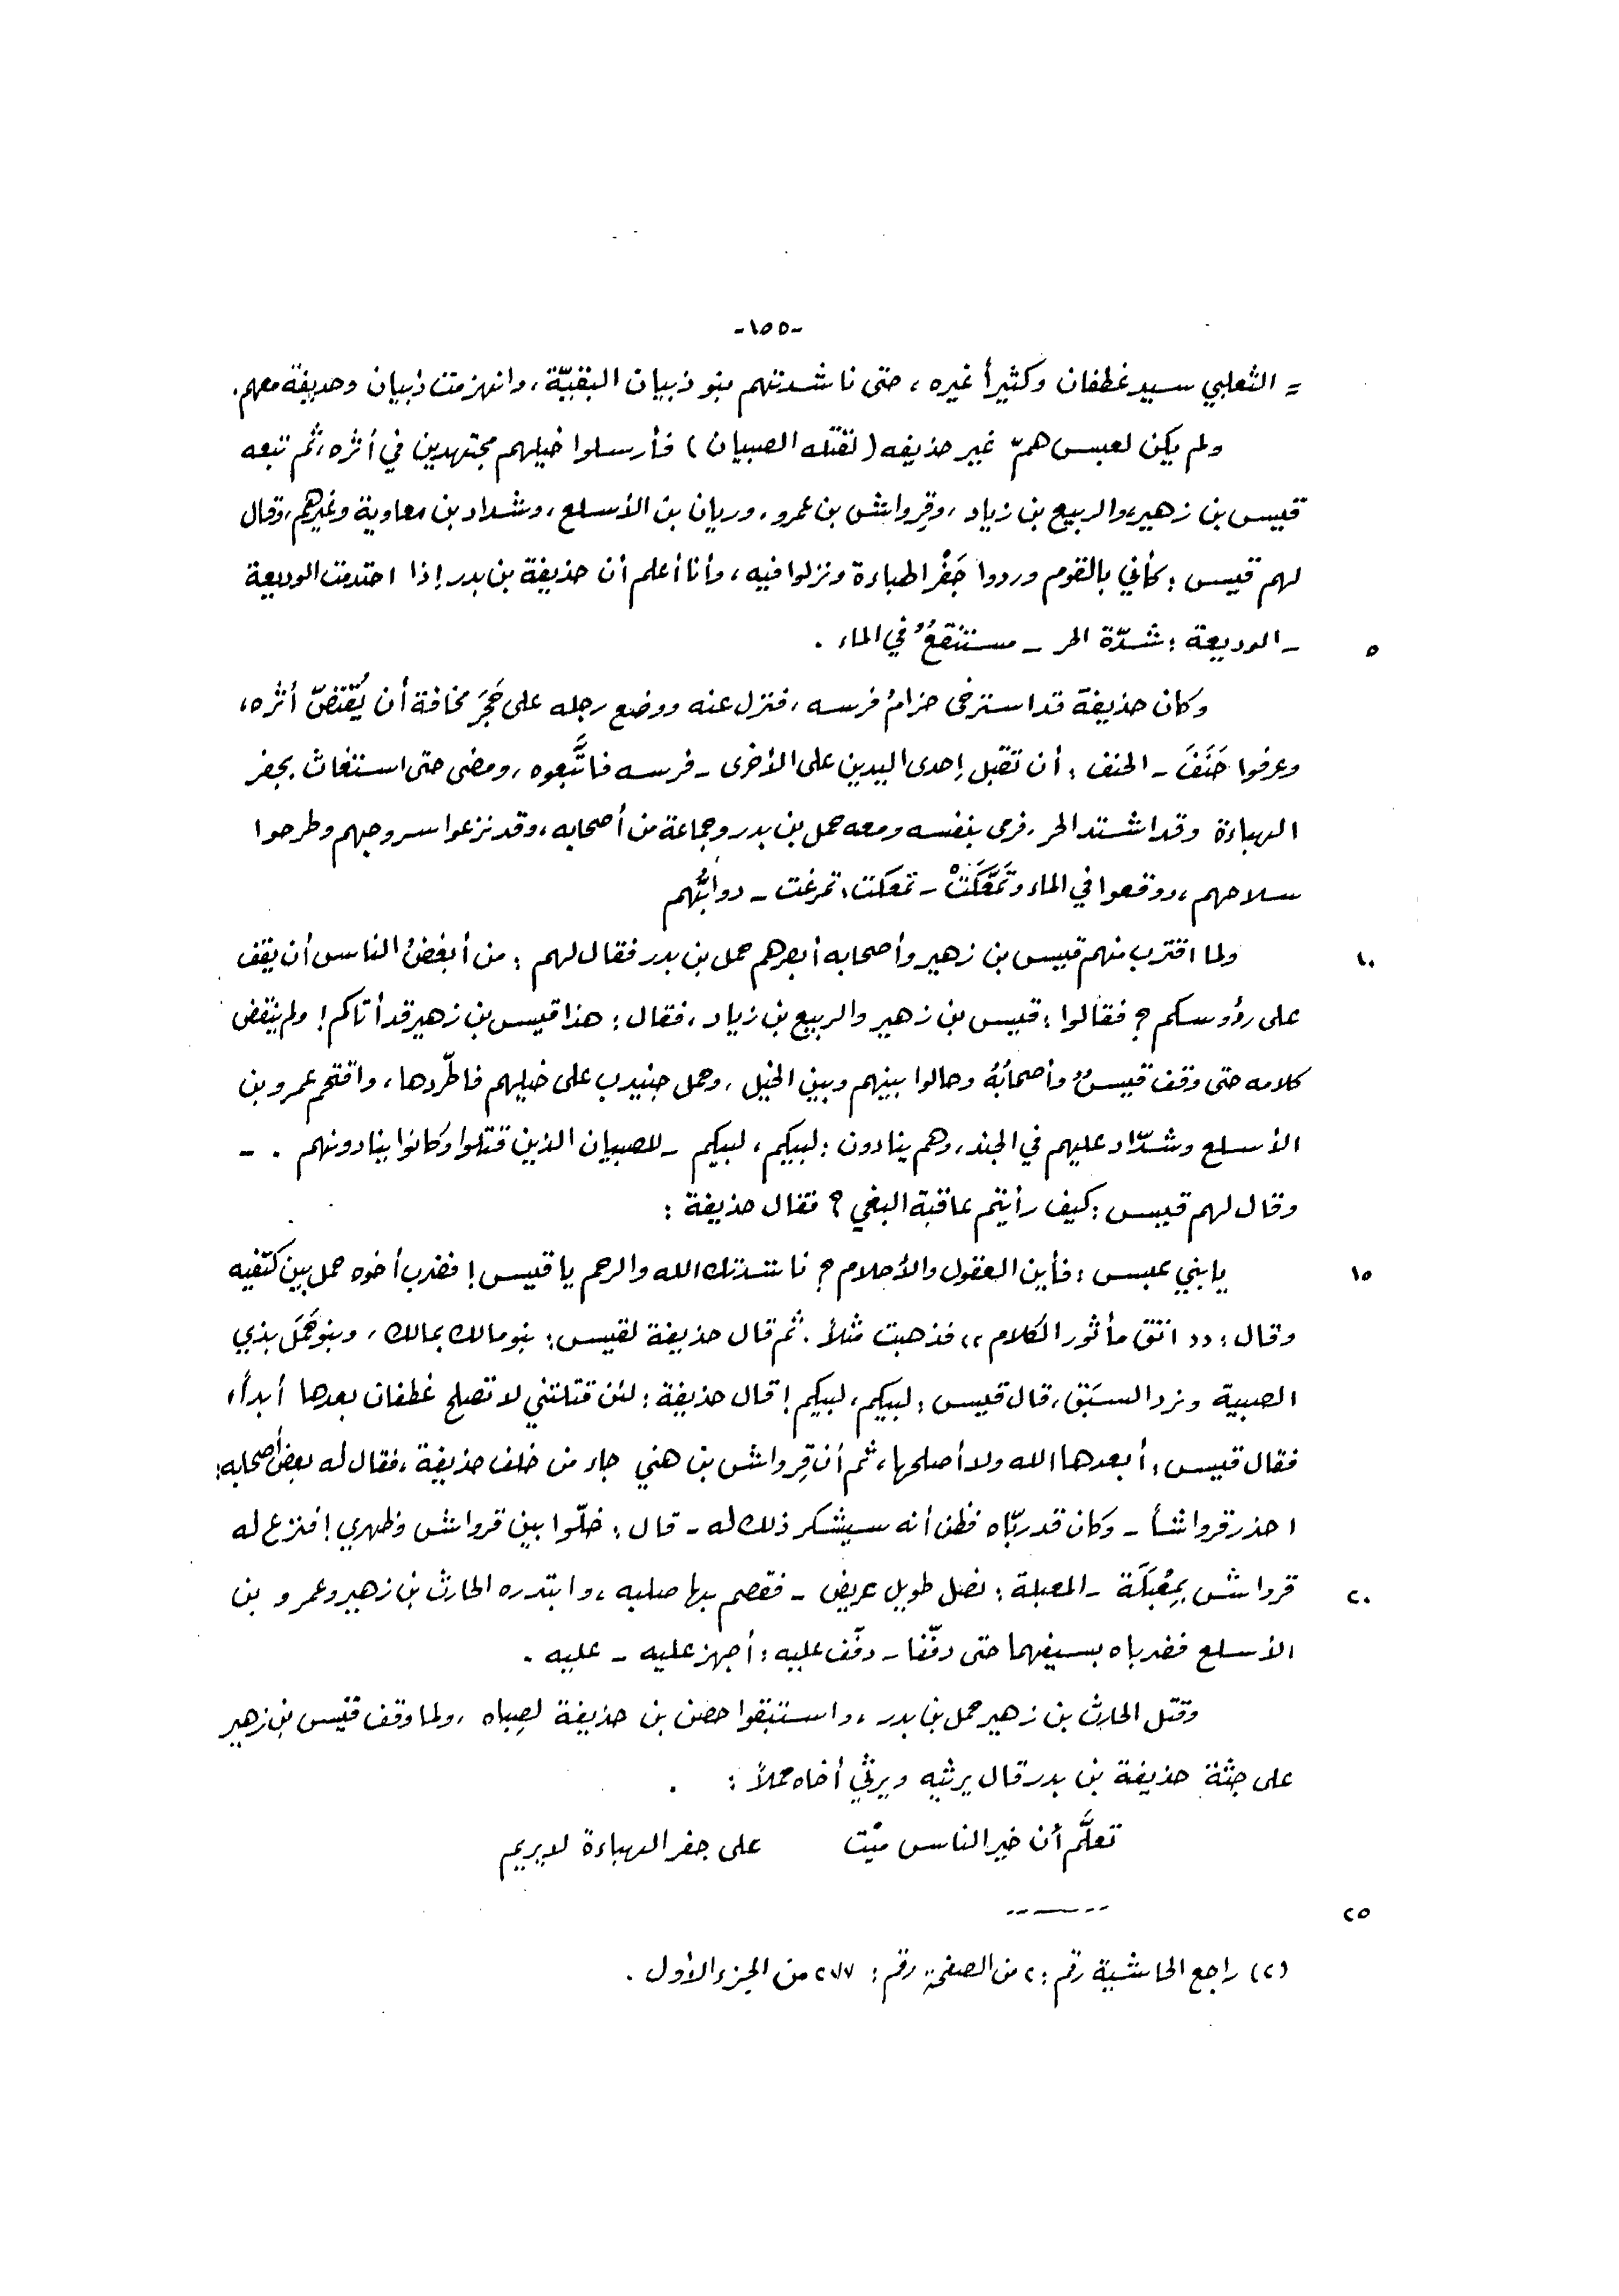 -١٥٥-
= الثعلبي سيد غطفان وكثيراً غيره ، حتى ناشدتهم بنو ذبيان البقيّة ، وانهزمت ذبيان وحذيفة معهم .
ولم يكن لعبس همّ غير حذيفه ( لقتله الصبيان ) فأرسلوا خيلهم مجتهدين في أثره ، ثم تبعه
قيس بن زهير ، والربيع بن زياد ، وقرواش بن عمرو ، وريان بن الأسلع ، وشداد بن معاوية وغيرهم ، وقال
لهم قيس : كأني بالقوم وردوا جَفْر الهباءة ونزلوا فيه ، وأنا أعلم أن حذيفة بن بدر إذا احتدمت الوديعة
٥ - الوديعة : شدّة الحر - مستنقعٌ في الماء .
وكان حذيفة قد استرخى حزامُ فرسه ، فنزل عنه ووضع رجله على حَجَرٍ مخافة أن يُقتصّ أثره ،
وعرفوا حَنَفَ - الحنف : أن تقبل إحدى اليدين على الأخرى - فرسه فاتَّبعوه ، ومضى حتى استغاث بجفر
الهباءة وقد اشتد الحر ، فرمى بنفسه ومعه حمل بن بدر وجماعة من أصحابه ، وقد نزعوا سروجهم وطرحوا
سلاحهم ، ووقعوا في الماء وتَمَعَّكَتْ - تمعكت : تمرغت - دوابُّهم
١٠ ولما اقترب منهم قيس بن زهير وأصحابه أبصرهم حمل بن بدر فقال لهم : من أبغضُ الناس أن يقف
على رؤوسكم ؟ فقالوا : قيس بن زهير والربيع بن زياد ، فقال : هذا قيس بن زهير قد أتاكم ! ولم ينقض
كلامه حتى وقف قيسٌ وأصحابُهُ وحالوا بينهم وبين الخيل ، وحمل جنيدب على خيلهم فاطّردها ، واقتحم عمرو بن
الأسلع وشدّاد عليهم في الجند ، وهم ينادون : لبيكم ، لبيكم - للصبيان الذين قتلوا وكانوا ينادونهم . -
وقال لهم قيس : كيف رأيتم عاقبة البغي ؟ فقال حذيفة :
١٥ يا بني عبس : فأين العقول والأحلام ؟ ناشدتك الله والرحم يا قيس ! فضرب أخوه حمل بين كتفيه
وقال : (( اتق مأثور الكلام ،، فذهبت مثلاً . ثم قال حذيفة لقيس : بنو مالك بمالك ، وبنو حَمَل بذي
الصبية ونرد السَبَق ، قال قيس : لبيكم ، لبيكم ! قال حذيفة : لئن قتلتني لا تصلح غطفان بعدها أبداً ،
فقال قيس : أبعدها الله ولا أصلحها ، ثم أن قِرواش بن هني جاء من خلف حذيفة ، فقال له بعض أصحابه :
احذر قرواشاً - وكان قد ربّاه فظن أنه سيشكر ذلك له - قال : خلّوا بين قرواش وظهري ! فنزع له
٢٠ قرواش بمِعْبَلَة - المعبلة : نصل طويل عريض - فقصم بها صلبه ، وابتدره الحارث بن زهير وعمرو بن
الأسلع فضرباه بسيفهما حتى دفّفا - دفّف عليه : أجهز عليه - عليه .
وقتل الحارث بن زهير حمل بن بدر ، واستبقوا حصن بن حذيفة لصِباه ، ولما وقف قيس بن زهير
على جثة حذيفة بن بدر قال يرثيه ويرثي أخاه حملاً :
تعلَّم أن خير الناس ميْت على جفر الهباءة لا يريم
٢٥
(٢) راجع الحاشية رقم : ٢ من الصفحة رقم : ٢٧٧ من الجزء الأول .